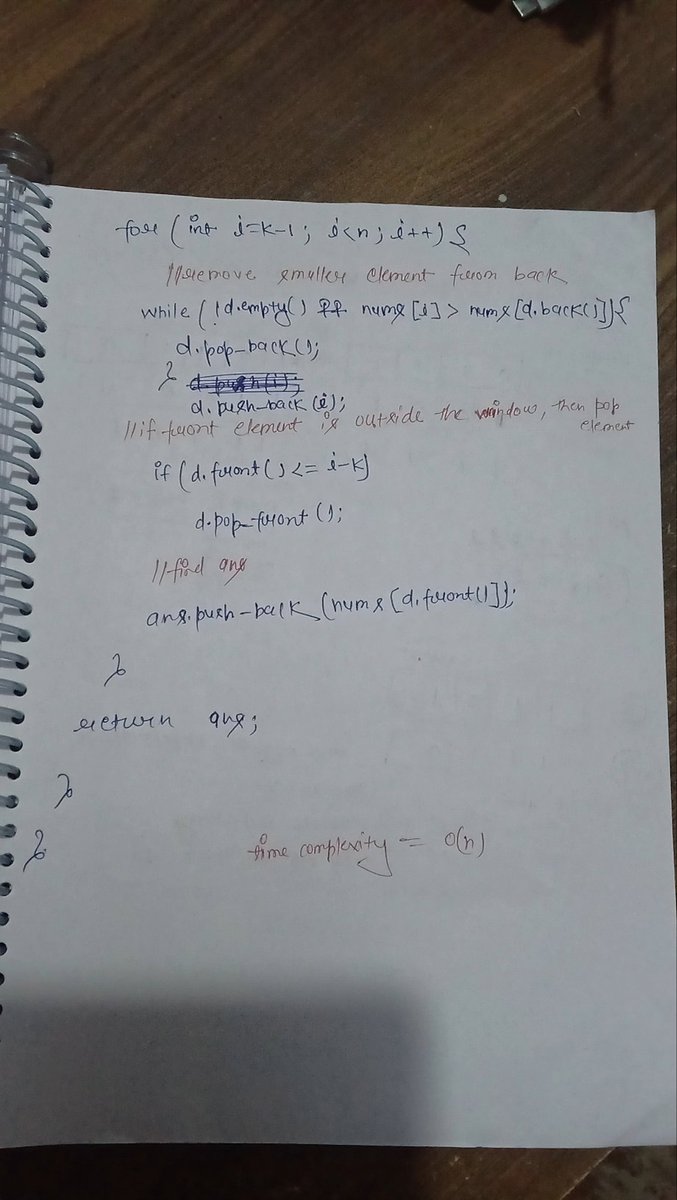 for (int i=k-1; i<n; i++) {
//remove smaller element from back
while (!d.empty() && nums[i] > nums[d.back()]){
d.pop-back();
}
d.push-back(i);
//if front element is outside the window, then pop element
if (d.front() <= i-k)
d.pop-front();
//find ans
ans.push-back(nums[d.front()]);
}
return ans;
}
}
time complexity = O(n)